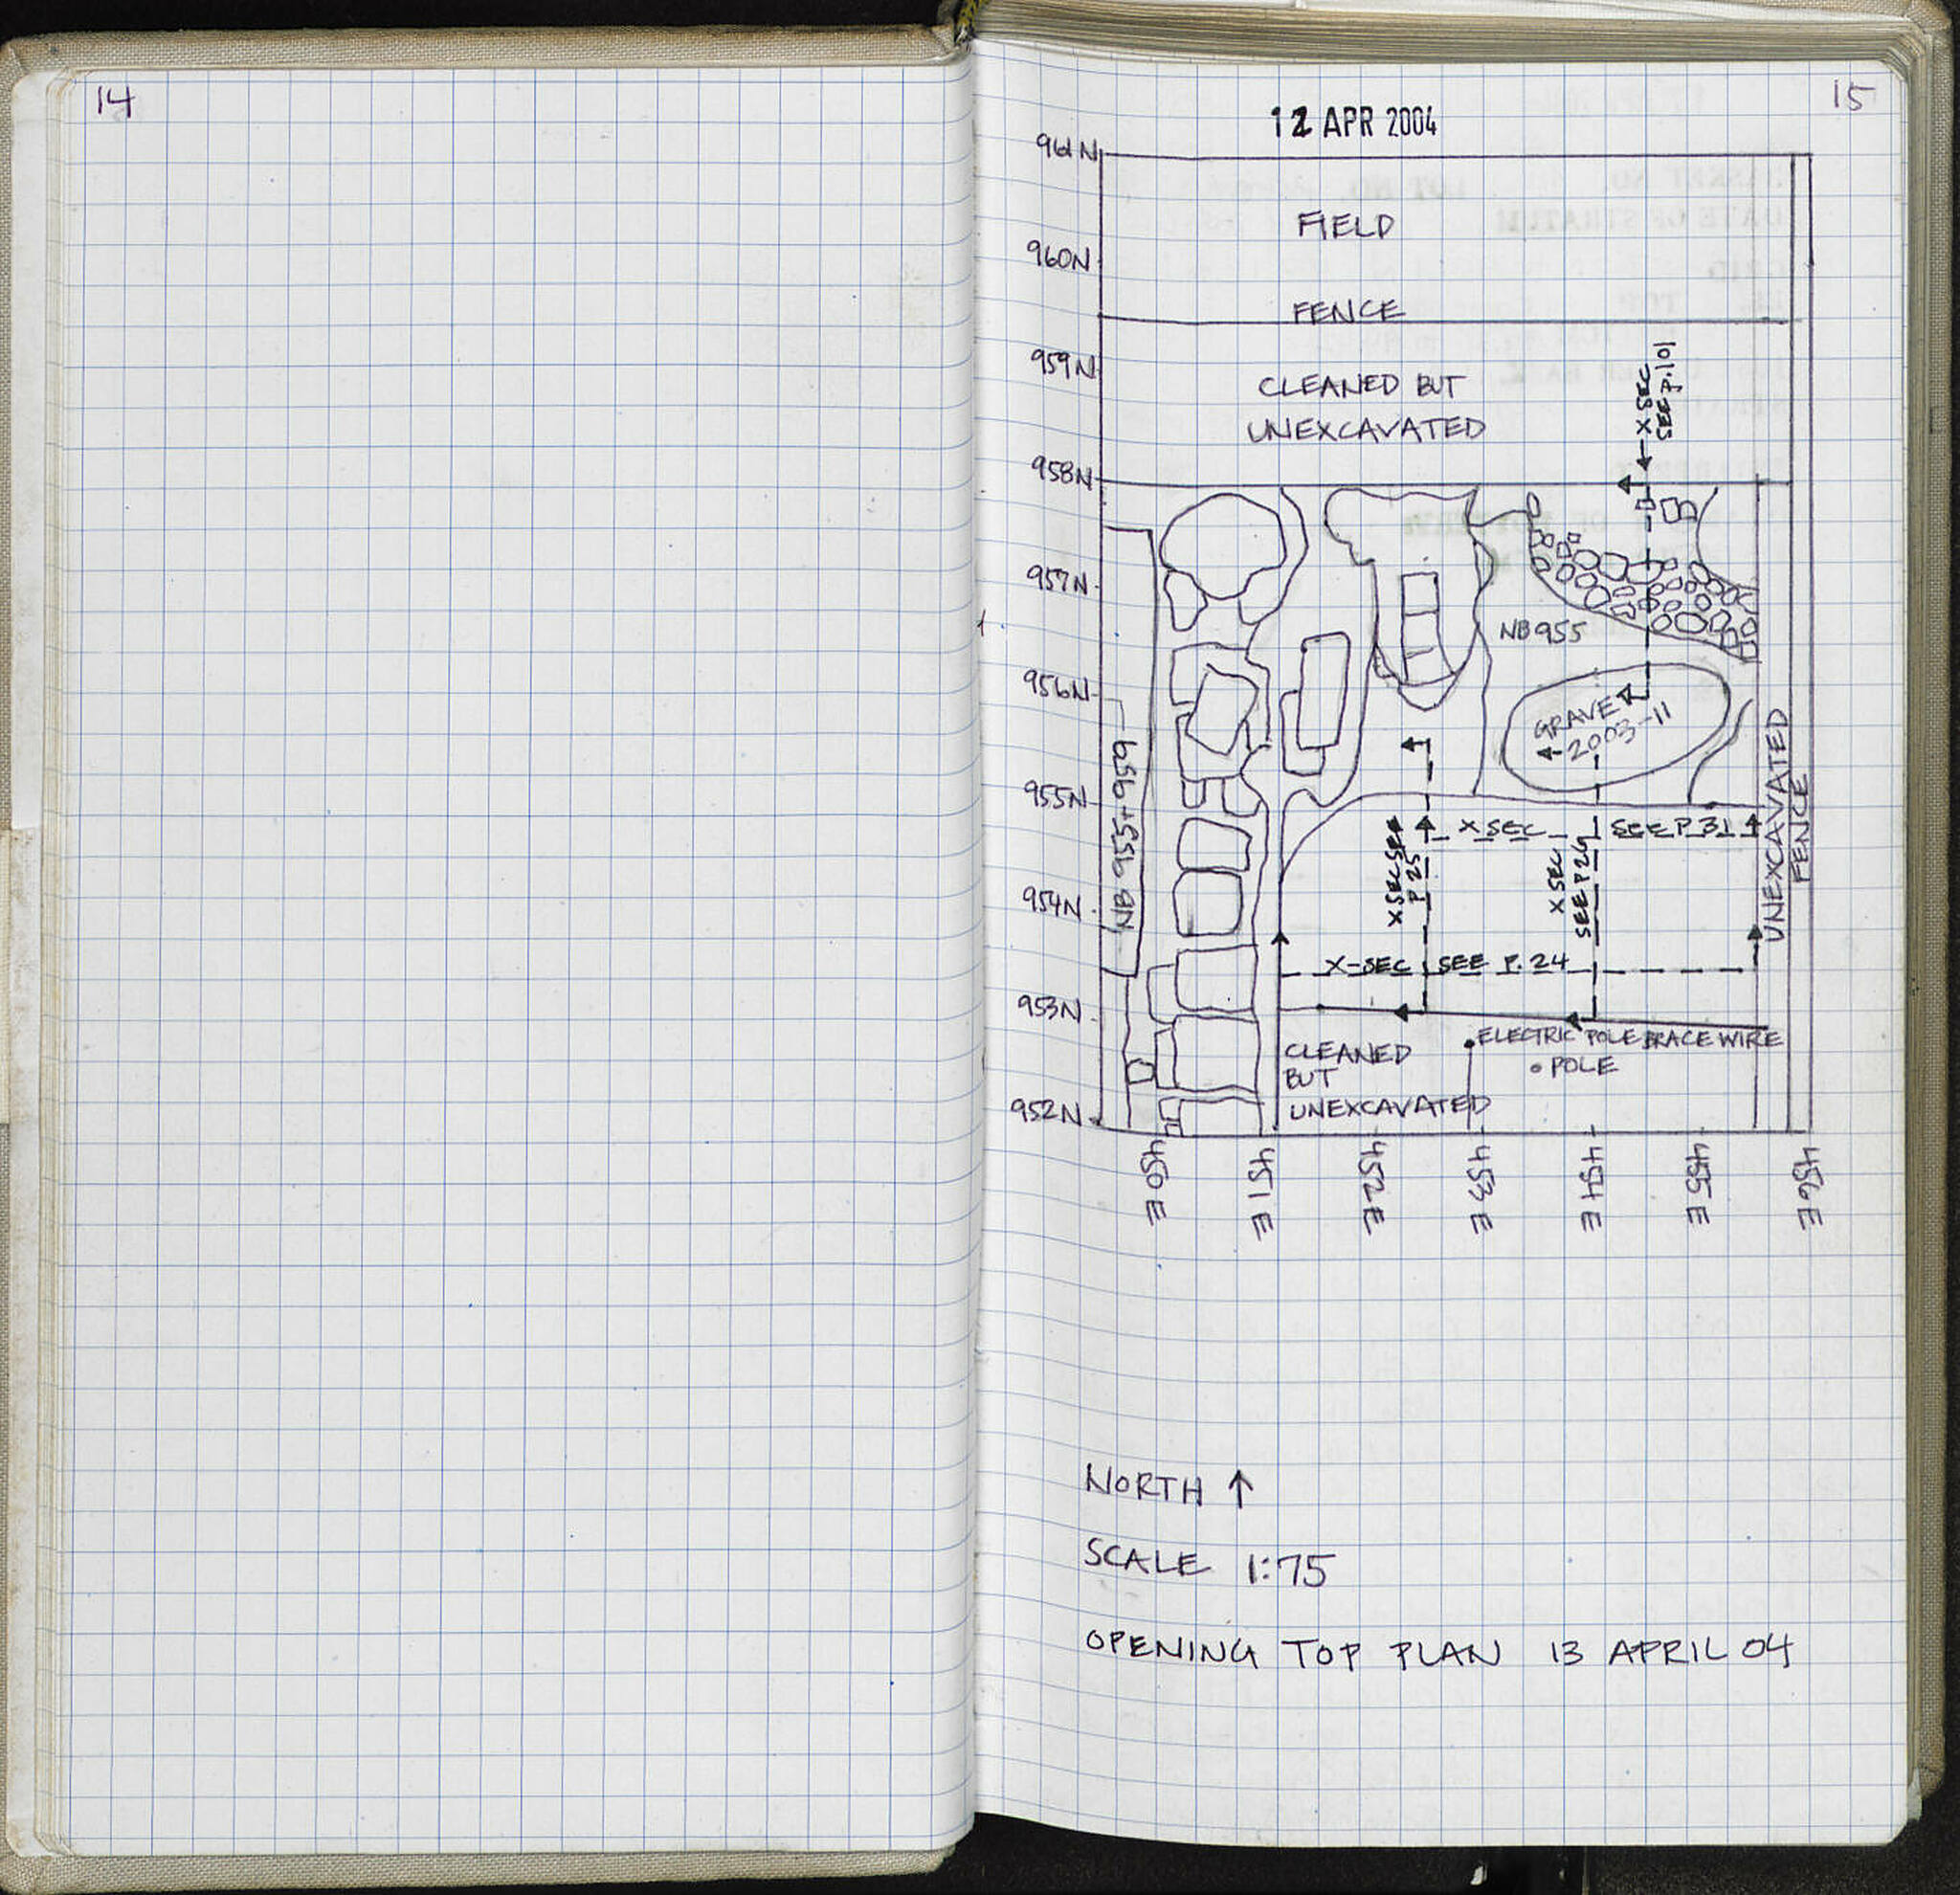 14
15
12 APR 2004
961N
FIELD
960N
FENCE
959N
CLEANED BUT
UNEXCAVATED
X SEC
SEE P.101
958N
957N
NB 955
956N
GRAVE
2003-11
955N
X SEC SEE P 31
X SEC SEE
P 25
X SEC
SEE P 26
UNEXCAVATED
FENCE
954N
X-SEC SEE P. 24
953N
ELECTRIC POLE BRACE WIRE
POLE
CLEANED
BUT
UNEXCAVATED
952N
450 E
451 E
452 E
453 E
454 E
455 E
456 E
NORTH ↑
SCALE 1:75
OPENING TOP PLAN 13 APRIL 04